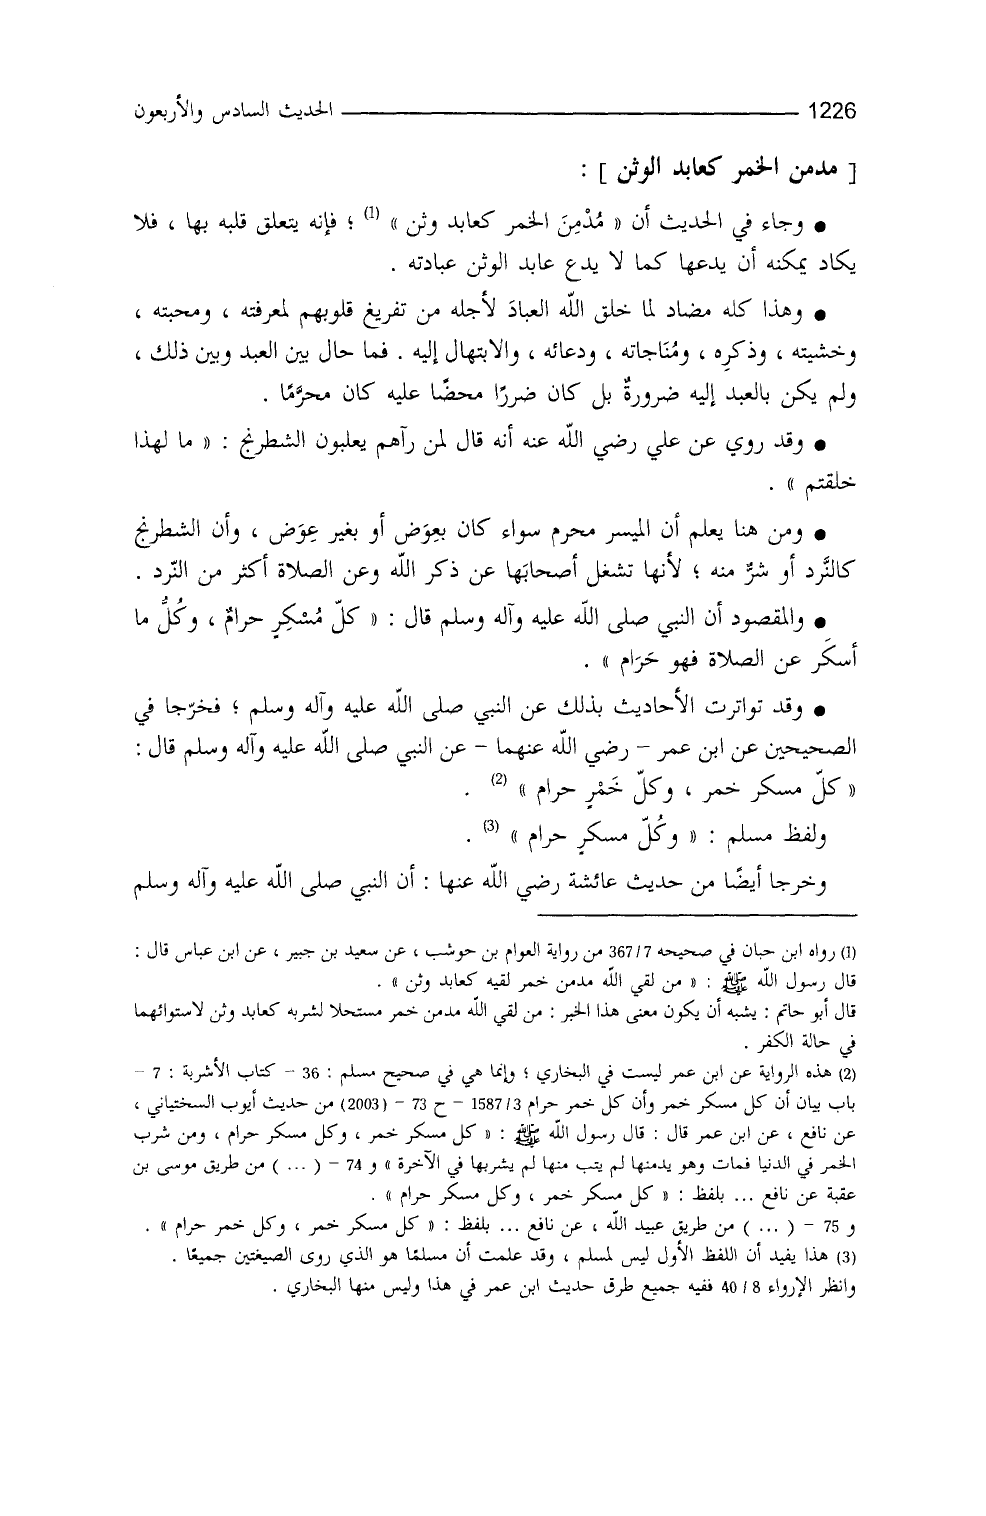 1226 الحديث السادس والأربعون
[ مدمن الخمر كعابد الوثن ] :
● وجاء في الحديث أن « مُدْمِنَ الخمر كعابد وثن » (1) ؛ فإنه يتعلق قلبه بها ، فلا
يكاد يمكنه أن يدعها كما لا يدع عابد الوثن عبادته .
● وهذا كله مضاد لما خلق اللّه العبادَ لأجله من تفريغ قلوبهم لمعرفته ، ومحبته ،
وخشيته ، وذكرِه ، ومُنَاجاته ، ودعائه ، والابتهال إليه . فما حال بين العبد وبين ذلك ،
ولم يكن بالعبد إليه ضرورةٌ بل كان ضررًا محضًا عليه كان محرَّمًا .
● وقد روي عن علي رضي اللّه عنه أنه قال لمن رآهم يعلبون الشطرنج : « ما لهذا
خلقتم » .
● ومن هنا يعلم أن الميسر محرم سواء كان بعِوَض أو بغير عِوَض ، وأن الشطرنج
كالنَّرد أو شرٌّ منه ؛ لأنها تشغل أصحابَها عن ذكر اللّه وعن الصلاة أكثر من النّرد .
● والمقصود أن النبي صلى اللّه عليه وآله وسلم قال : « كلّ مُسْكِرٍ حرامٌ ، وكُلُّ ما
أسكَر عن الصلاة فهو حَرَام » .
● وقد تواترت الأحاديث بذلك عن النبي صلى اللّه عليه وآله وسلم ؛ فخرّجا في
الصحيحين عن ابن عمر – رضي اللّه عنهما – عن النبي صلى اللّه عليه وآله وسلم قال :
« كلّ مسكر خمر ، وكلّ خَمْرٍ حرام » (2) .
ولفظ مسلم : « وكُلّ مسكرٍ حرام » (3) .
وخرجا أيضًا من حديث عائشة رضي اللّه عنها : أن النبي صلى اللّه عليه وآله وسلم
(1) رواه ابن حبان في صحيحه 7/ 367 من رواية العوام بن حوشب ، عن سعيد بن جبير ، عن ابن عباس قال :
قال رسول اللّه ﷺ : « من لقي اللّه مدمن خمر لقيه كعابد وثن » .
قال أبو حاتم : يشبه أن يكون معنى هذا الخبر : من لقي اللّه مدمن خمر مستحلا لشربه كعابد وثن لاستوائهما
في حالة الكفر .
(2) هذه الرواية عن ابن عمر ليست في البخاري ؛ وإنما هي في صحيح مسلم : 36 – كتاب الأشربة : 7 –
باب بيان أن كل مسكر خمر وأن كل خمر حرام 3/ 1587 – ح 73 – (2003) من حديث أيوب السختياني ،
عن نافع ، عن ابن عمر قال : قال رسول اللّه ﷺ : « كل مسكر خمر ، وكل مسكر حرام ، ومن شرب
الخمر في الدنيا فمات وهو يدمنها لم يتب منها لم يشربها في الآخرة » و 74 – ( ... ) من طريق موسى بن
عقبة عن نافع ... بلفظ : « كل مسكر خمر ، وكل مسكر حرام » .
و 75 – ( ... ) من طريق عبيد اللّه ، عن نافع ... بلفظ : « كل مسكر خمر ، وكل خمر حرام » .
(3) هذا يفيد أن اللفظ الأول ليس لمسلم ، وقد علمت أن مسلمًا هو الذي روى الصيغتين جميعًا .
وانظر الإرواء 8/ 40 ففيه جميع طرق حديث ابن عمر في هذا وليس منها البخاري .